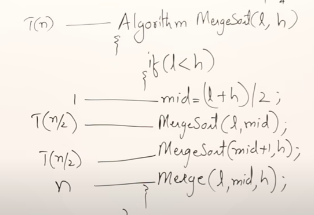 T(n) —— Algorithm MergeSort(l, h)
{
if(l<h)
{
1 —— mid=(l+h)/2;
T(n/2) —— MergeSort(l,mid);
T(n/2) —— MergeSort(mid+1,h);
n —— Merge(l,mid,h);
}